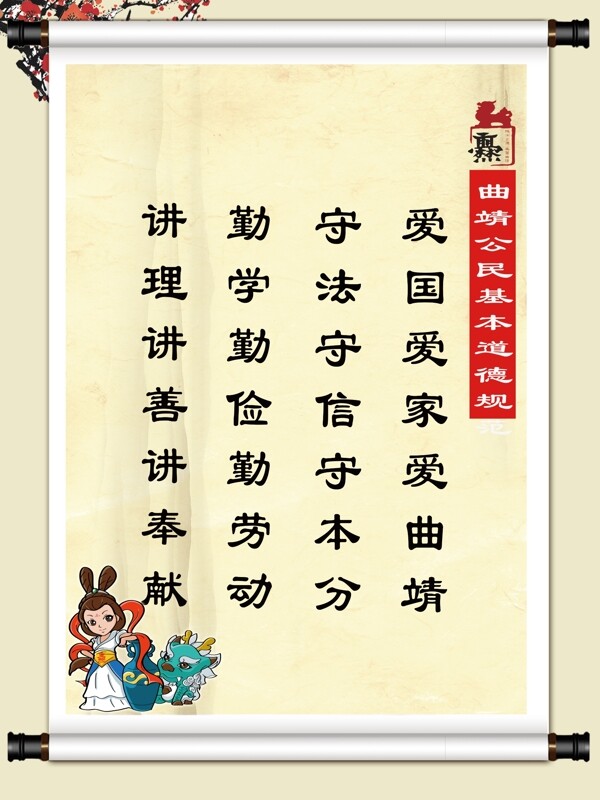 曲靖公民基本道德规范
爱国爱家爱曲靖
守法守信守本分
勤学勤俭勤劳动
讲理讲善讲奉献